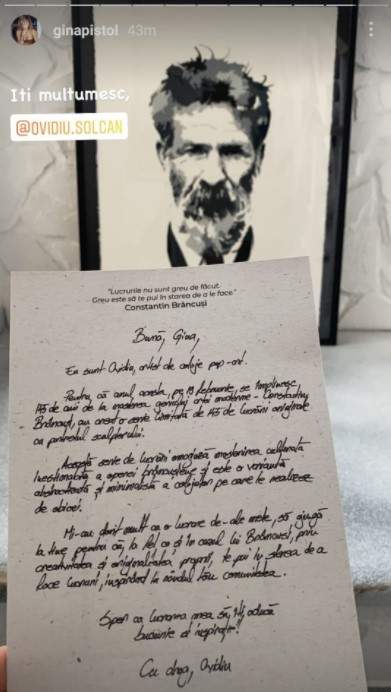 ginapistol 43m
Iti multumesc,
@OVIDIU.SOLCAN
"Lucrurile nu sunt greu de făcut.
Greu este să te pui în starea de a le face."
Constantin Brâncuși
Bună, Gina,
Eu sunt Ovidiu, artist de colaje pop-art.
Pentru că anul acesta, pe 19 februarie, se împlinesc
145 de ani de la nașterea geniului artei moderne - Constantin
Brâncuși, am creat o serie limitată de 145 de lucrări originale
cu portretul sculptorului.
Această serie de lucrări imaginea
a operei brâncușiene și este o variantă
abstractă și minimalistă a colajelor pe care le realizez
de obicei.
Mi-am dorit mult ca o lucrare de-ale mele, să ajungă
la tine pentru că, la fel ca și în cazul lui Brâncuși, prin
creativitatea și originalitatea proprii, te pui în starea de a
face lucruri, inspirând la rândul tău comunitatea.
Sper ca lucrarea mea să-ți aducă
bucurie și inspirație!
Cu drag, Ovidiu